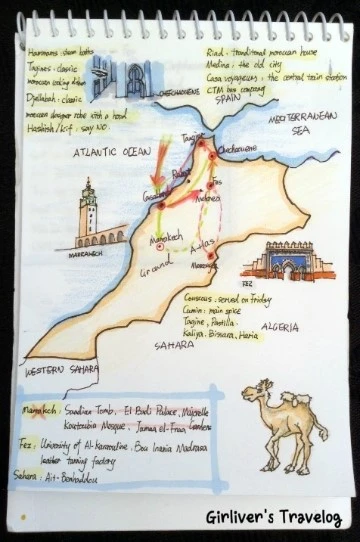 Hammams: steam baths
Tagines: classic
moroccan cooking dishes
Djellabah: classic
moroccan designer robe with a hood
Hashish/kif: say NO.
Riad: traditional moroccan house
Medina: the old city
Casa voyageurs: the central train station
CTM bus company
CHEFCHAOUENE
SPAIN
MEDITERRANEAN
SEA
ATLANTIC OCEAN
Tangier
Chefchaouene
Rabat
Fes
Casablanca
Meknes
Marrakech
Atlas
Ground
MARRAKECH
FEZ
Couscous: served on Friday
Cumin: main spice
Tagine, Pastilla
Kaliya, Bissara, Harira
ALGERIA
SAHARA
WESTERN SAHARA
Marrakech: Saadian Tomb, El Badi Palace, Majorelle
Koutoubia Mosque, Jamaa el-Fnaa Gardens
Fez: University of Al-Karaouine, Bou Inania Madrasa
leather tanning factory
Sahara: Ait-Benhaddou
Girliver's Travelog